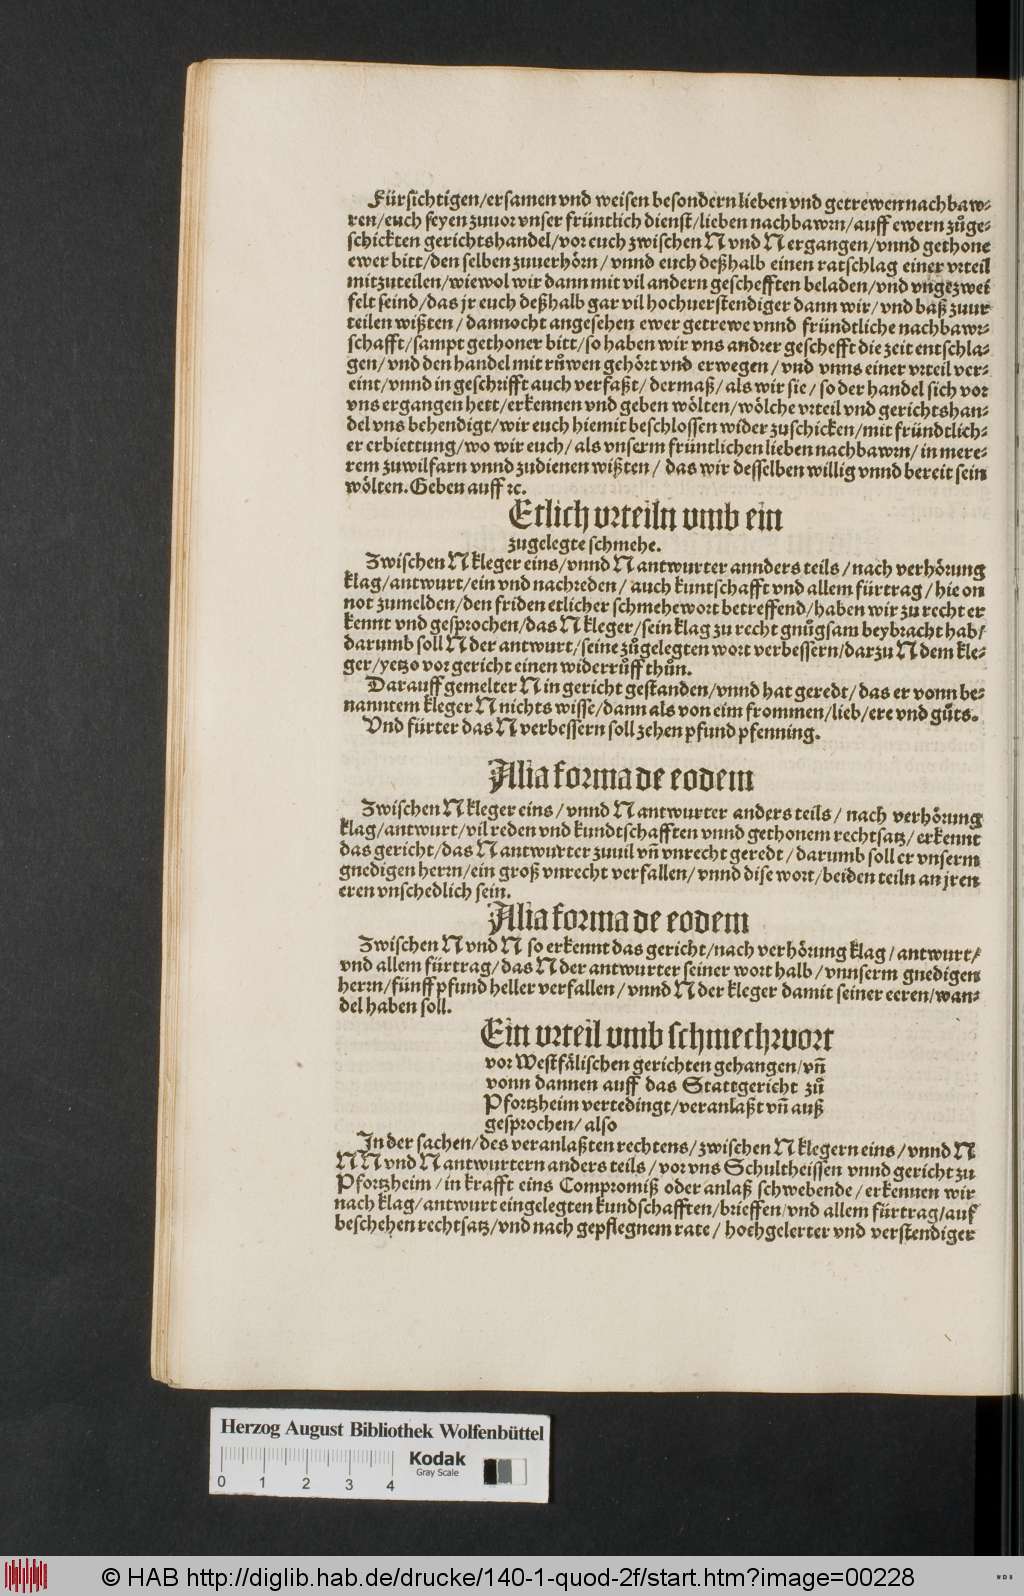 Fürsichtigen/ersamen vnd weisen besondern lieben vnd getrewen nachbaw-
ren/euch seyen zuuor vnser früntlich dienst/lieben nachbawrn/auff ewern zůge-
schickten gerichtshandel/vor euch zwischen N vnd N ergangen/vnnd gethone
ewer bitt/den selben zuuerhörn/vnnd euch deßhalb einen ratschlag einer vrteil
mitzuteilen/wiewol wir dann mit vil andern geschefften beladen/vnd vngezwei
felt seind/das jr euch deßhalb gar vil hochuerstendiger dann wir/vnd baß zuur
teilen wißten/dannocht angesehen ewer getrewe vnnd fründtliche nachbawr-
schafft/sampt gethoner bitt/so haben wir vns andrer gescheft die zeit entschla-
gen/vnd den handel mit růwen gehört vnd erwegen/vnd vnns einer vrteil ver-
eint/vnnd in geschrifft auch verfaßt/dermaß/als wir sie/so der handel sich vor
vns ergangen hett/erkennen vnd geben wölten/wölche vrteil vnd gerichtshan-
del vns behendigt/wir euch hiemit beschlossen wider zuschicken/mit fründtlich-
er erbiettung/wo wir euch/als vnserm früntlichen lieben nachbawrn/in mere-
rem zuwilfarn vnnd zudienen wißten/das wir desselben willig vnnd bereit sein
wölten. Geben auff ꝛc.
Etlich vrteiln vmb ein
zugelegte schmehe.
Zwischen N kleger eins/vnnd N antwurter annders teils/nach verhörung
klag/antwurt/ein vnd nachreden/auch kuntschafft vnd allem fürtrag/hie on
not zumelden/den friden etlicher schmehewort betreffend/haben wir zu recht er
kennt vnd gesprochen/das N kleger/sein klag zu recht gnůgsam beybracht hab/
darumb soll N der antwurt/seine zůgelegten wort verbessern/darzu N dem kle-
ger/yetzo vor gericht einen widerrůff thůn.
Darauff gemelter N in gericht gestanden/vnnd hat geredt/das er vonn be-
nanntem kleger N nichts wisse/dann als von eim frommen/lieb/ere vnd gůts.
Vnd fürter das N verbessern soll zehen pfund pfenning.
Alia forma de eodem
Zwischen N kleger eins/vnnd N antwurter anders teils/nach verhörung
klag/antwurt/vil reden vnd kundtschafften vnnd gethonem rechtsatz/erkennt
das gericht/das N antwurter zuuil vñ vnrecht geredt/darumb soll er vnserm
gnedigen herrn/ein groß vnrecht verfallen/vnnd dise wort/beiden teiln an jren
eren vnschedlich sein.
Alia forma de eodem
Zwischen N vnd N so erkennt das gericht/nach verhörung klag/antwurt/
vnd allem fürtrag/das N der antwurter seiner wort halb/vnnserm gnedigen
herrn/fünff pfund heller verfallen/vnnd N der kleger damit seiner eeren/wan-
del haben soll.
Ein vrteil vmb schmechwort
vor Westfälischen gerichten gehangen/vñ
vonn dannen auff das Stattgericht zů
Pfortzheim vertedingt/veranlaßt vñ auß
gesprochen/also
In der sachen/des veranlaßten rechtens/zwischen N klegern eins/vnnd N
N N vnd N antwurtern anders teils/vor vns Schultheissen vnnd gericht zu
Pfortzheim/in krafft eins Compromiß oder anlaß schwebende/erkennen wir
nach klag/antwurt eingelegten kundschafften/brieffen/vnd allem fürtrag/auf
beschehen rechtsatz/vnd nach gepflegnem rate/hochgelerter vnd verstendiger
Herzog August Bibliothek Wolfenbüttel
Kodak
Gray Scale
0 1 2 3 4
© HAB http://diglib.hab.de/drucke/140-1-quod-2f/start.htm?image=00228